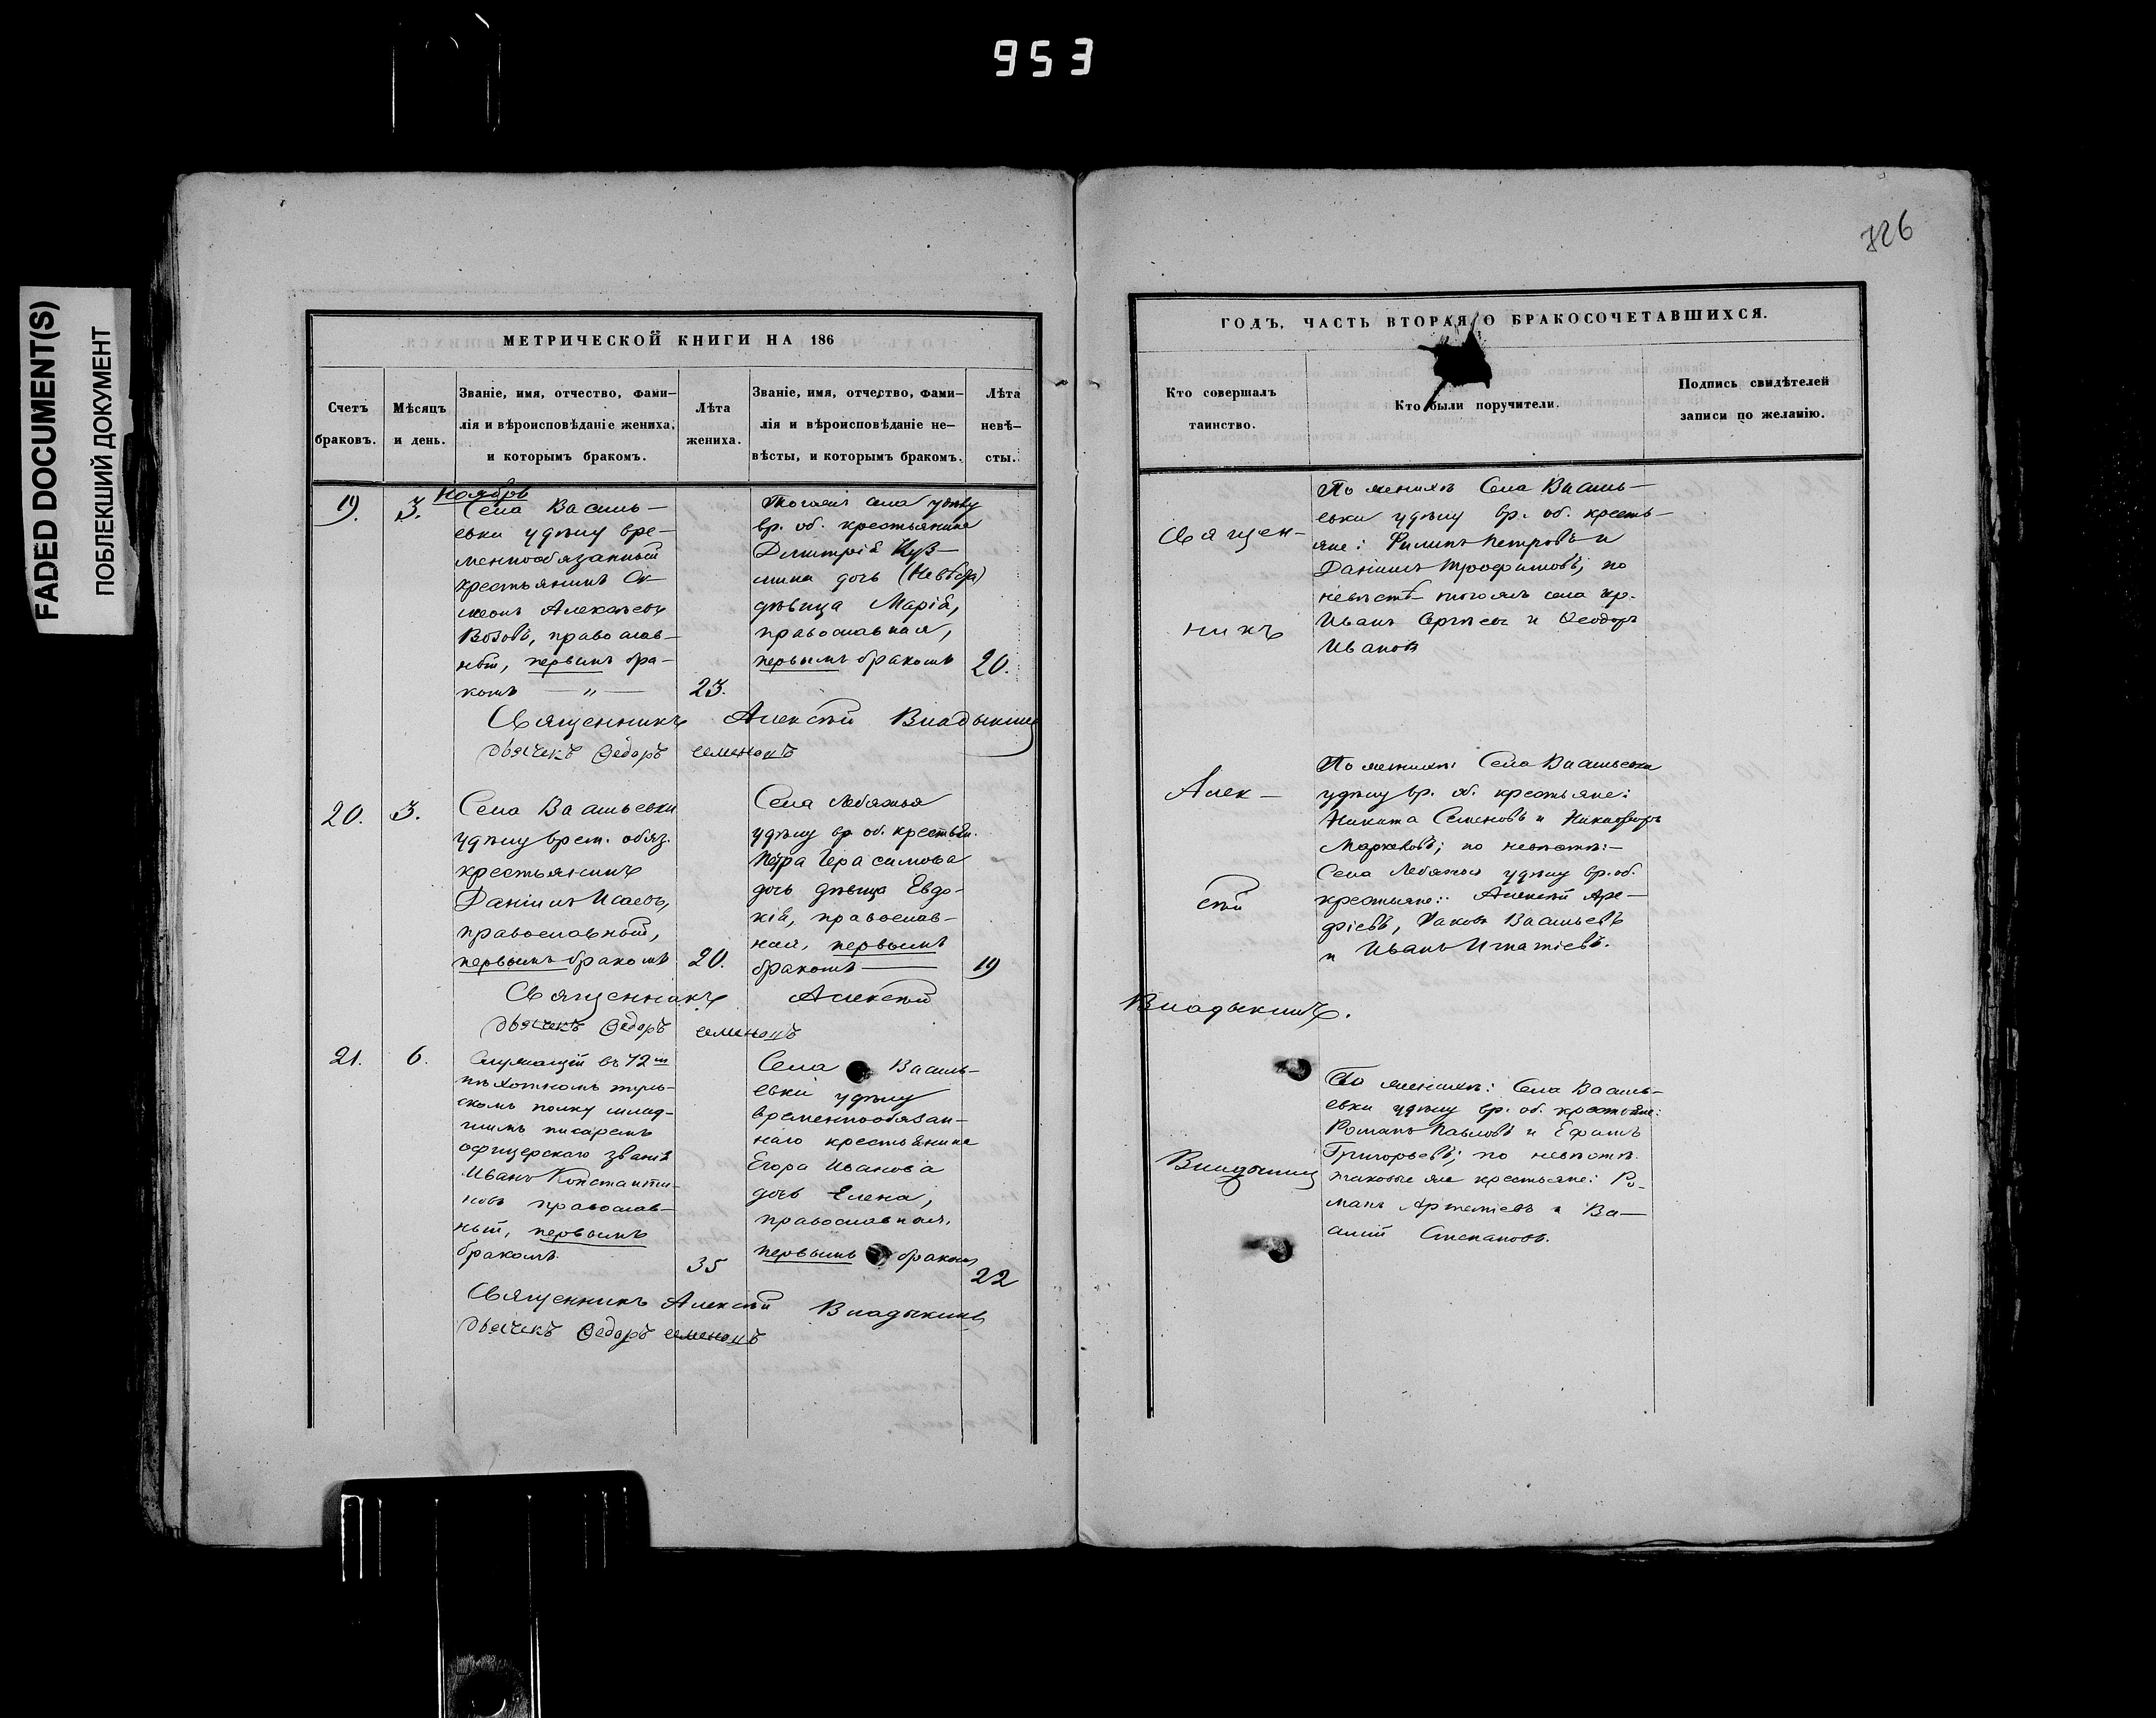 953
FADED DOCUMENT(S)
ПОБЛЕКШИЙ ДОКУМЕНТ
726
МЕТРИЧЕСКОЙ КНИГИ НА 186
Счетъ браковъ.
Мѣсяцъ и день.
Званіе, имя, отчество, фами-
лія и вѣроисповѣданіе жениха,
и которымъ бракомъ.
Лѣта жениха.
Званіе, имя, отчество, фами-
лія и вѣроисповѣданіе не-
вѣсты, и которымъ бракомъ.
Лѣта невѣ-
сты.
19.
Ноябрь
3.
Села Василь-
евки удѣлу вре-
меннообязанный
крестьянинъ Си-
меонъ Алексѣевъ
православ-
ный, первымъ бра-
комъ — „ —
23.
Тогоже села удѣлу
вр. об. крестьянина
Димитрія Куз-
мина дочь
дѣвица Марія,
православная,
первымъ бракомъ
20.
Священникъ Алексѣй Владыкинъ
Дьячекъ Ѳедоръ Семеновъ
20.
3.
Села Васильевки
удѣлу врем. обяз.
крестьянинъ
Даніилъ Исаевъ,
православный,
первымъ бракомъ
20.
Села Лебяжья
удѣлу вр. об. крестьян.
Петра Герасимова
дочь дѣвица Евдо-
кія, православ-
ная, первымъ
бракомъ —
19
Священникъ Алексѣй Владыкинъ.
Дьячекъ Ѳедоръ Семеновъ
21.
6.
Служащій въ 72м
пѣхотномъ туль-
скомъ полку млад-
шимъ писаремъ
офицерскаго званія
Иванъ Константи-
новъ православ-
ный, первымъ
бракомъ
35
Села Василь-
евки удѣлу
временнообязан-
наго крестьянина
Егора Иванова
дочь Елена,
православная,
первымъ бракомъ
22
Священникъ Алексѣй Владыкинъ
Дьячекъ Ѳедоръ Семеновъ
ГОДЪ, ЧАСТЬ ВТОРАЯ, О БРАКОСОЧЕТАВШИХСЯ.
Кто совершалъ
таинство.
Кто были поручители.
Подпись свидѣтелей
записи по желанію.
Священ-
никъ
Алек-
сѣй
Владыкинъ
По женихѣ Села Василь-
евки удѣлу вр. об. кресть-
яне: Филипъ Петровъ и
Даніилъ Трофимовъ, по
невѣстѣ тогожъ села кр.
Иванъ Сергѣевъ и Ѳеодоръ
Ивановъ
По женихѣ: Села Васильевки
удѣлу вр. об. крестьяне:
Никита Семеновъ и Никифоръ
по невѣстѣ:—
Села Лебяжья удѣлу вр. об.
крестьяне: Алексѣй
Яковъ Васильевъ
и Иванъ Игнатіевъ.
По женихѣ: Села Василь-
евки удѣлу вр. об. крестьяне:
Романъ Павловъ и Ефимъ
Григорьевъ; по невѣстѣ
таковые же крестьяне: Ро-
манъ Артеміевъ и Ва-
силій Степановъ.